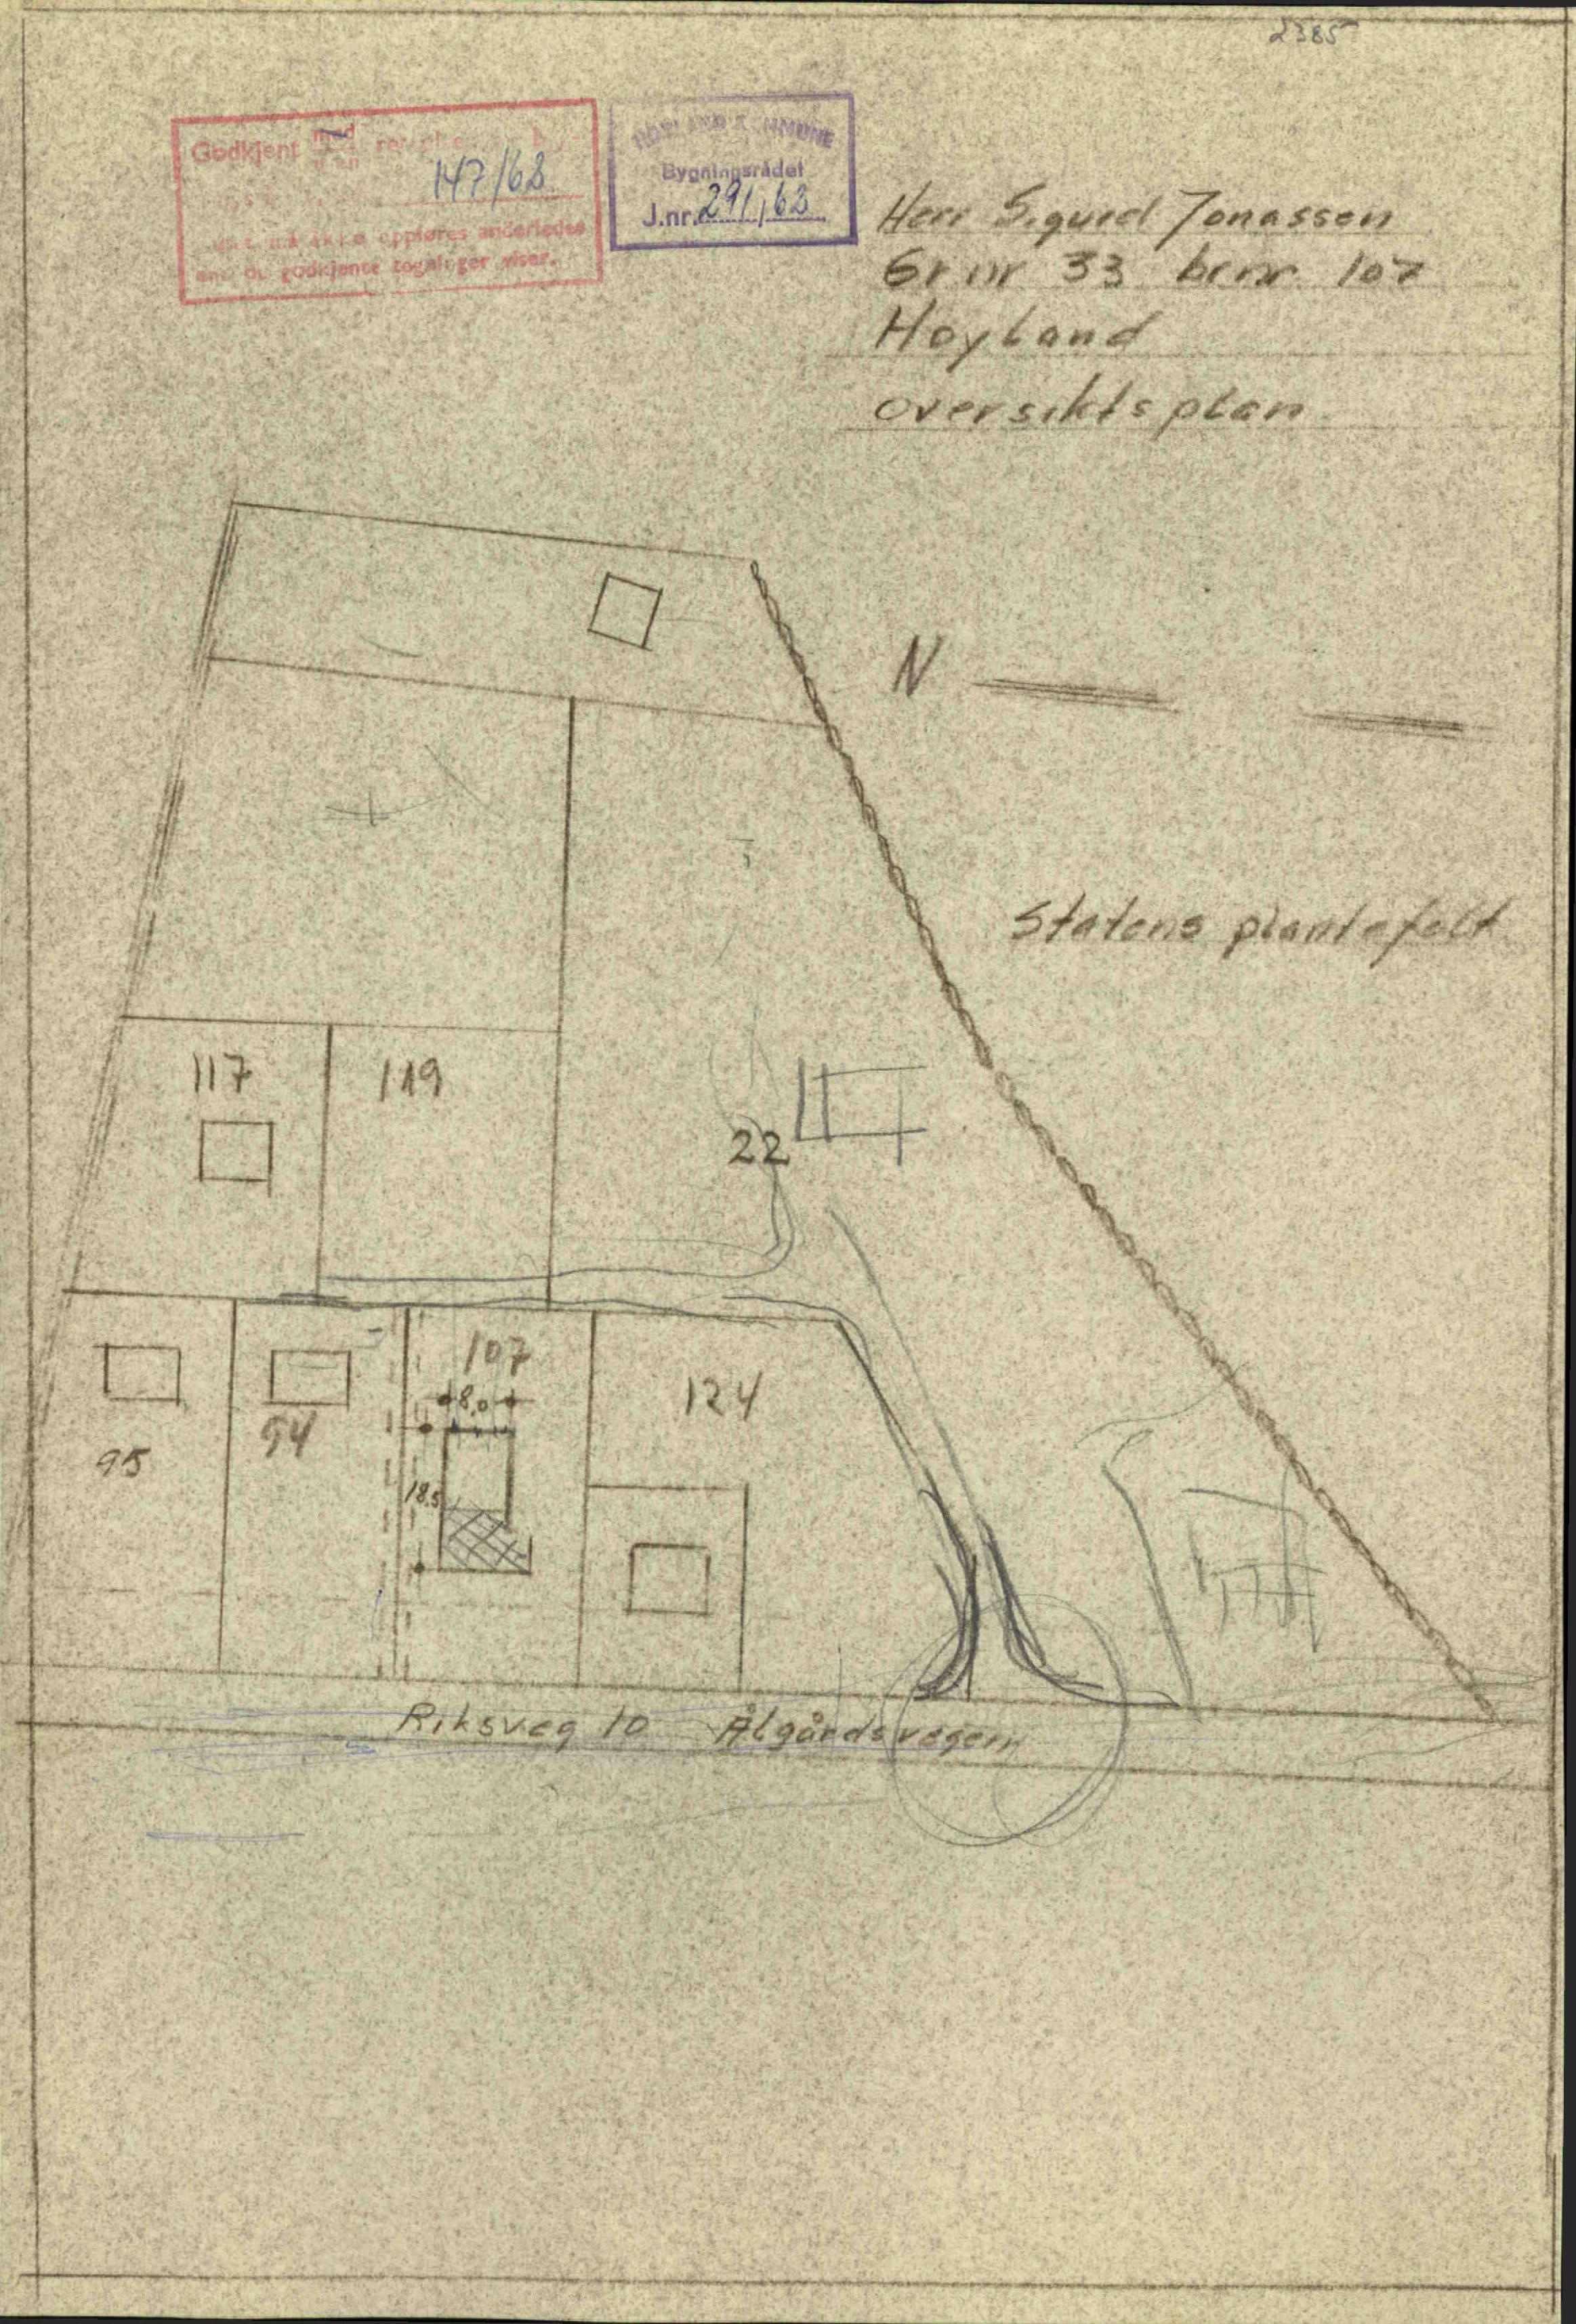 2385
Godkjent med
147/63
oppføres anderledes
enn de godkjente tegninger viser.
HØYLAND KOMMUNE
Bygningsrådet
J.nr. 291/63
Herr Sigurd Jonassen
Gr nr 33 brnr 107
Høyland
oversiktsplan
N
Statens plantefelt
117
119
22
107
8,0
124
94
95
18,5
Riksveg 10 Ålgårdsvegen